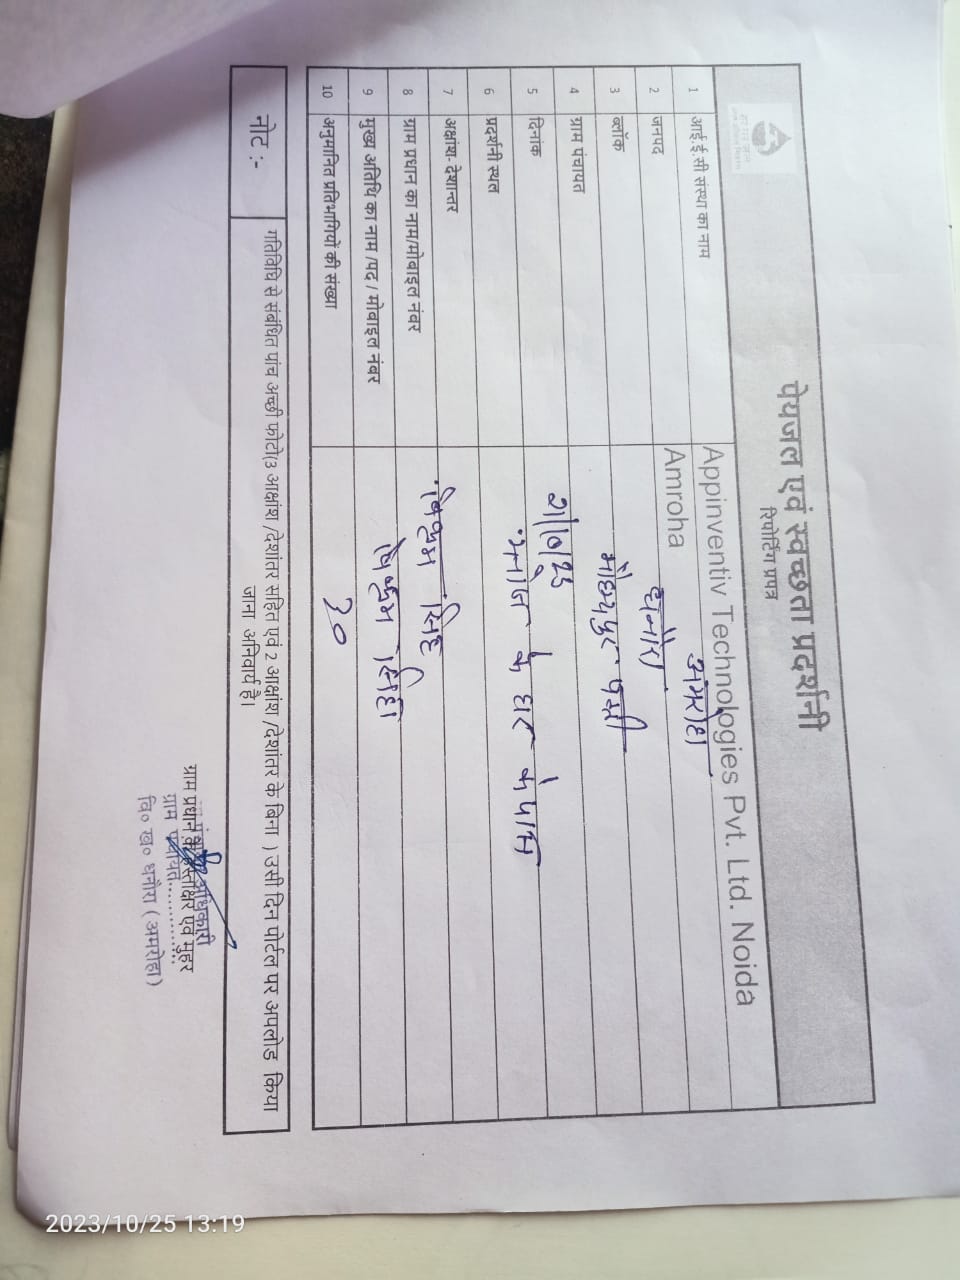 पेयजल एवं स्वच्छता प्रदर्शनी
रिपोर्टिंग प्रपत्र
1 आई.ई.सी संस्था का नाम Appinventiv Technologies Pvt. Ltd. Noida
2 जनपद Amroha अमरोहा
3 ब्लॉक धनौरा
4 ग्राम पंचायत
5 दिनांक
6 प्रदर्शनी स्थल के घर के पास
7 अक्षांश- देशान्तर
8 ग्राम प्रधान का नाम/मोबाइल नंबर सिंह
9 मुख्य अतिथि का नाम /पद / मोबाइल नंबर
10 अनुमानित प्रतिभागियों की संख्या 30
नोट :- गतिविधि से संबंधित पांच अच्छी फोटो(3 आक्षांश /देशांतर सहित एवं 2 आक्षांश /देशांतर के बिना ) उसी दिन पोर्टल पर अपलोड किया
जाना अनिवार्य है।
ग्राम प्रधान के हस्ताक्षर एवं मुहर
अधिकारी
ग्राम पंचायत..............
वि० ख० धनौरा (अमरोहा)
2023/10/25 13:19